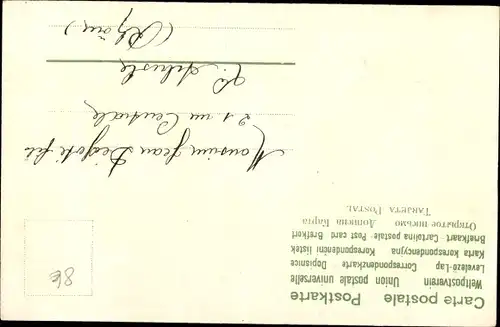 Carte postale Postkarte
Weltpostverein Union postale universelle
Levelező-Lap Correspondenzkarte Dopisnice
Karta korespondencyjna Korespondenční lístek
Briefkaart Cartolina postale Post card Brefkort
Открытое письмо Дописни Карта
Tarjeta Postal
Monsieur Jean fils
21 rue Centrale
(Rhône)
8€